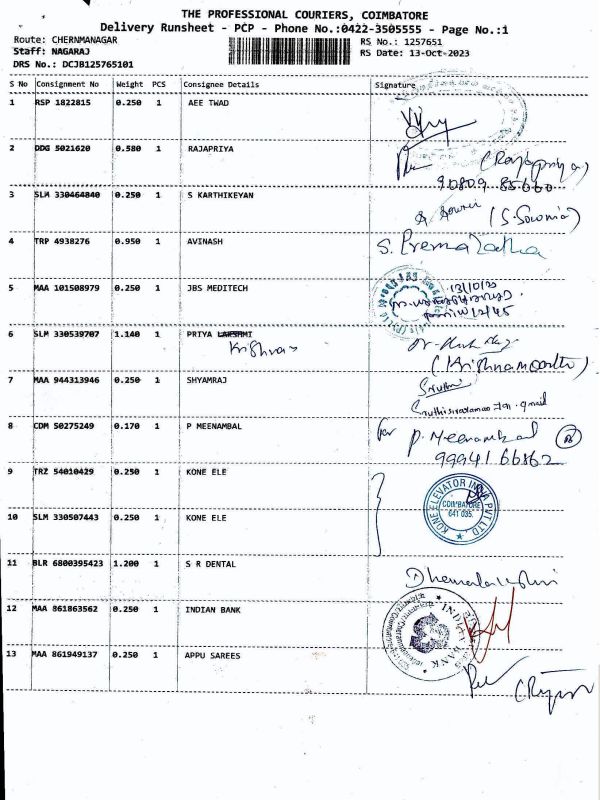 THE PROFESSIONAL COURIERS, COIMBATORE
Delivery Runsheet - PCP - Phone No.:0422-3505555 - Page No.:1
Route: CHERNMANAGAR
RS No.: 1257651
Staff: NAGARAJ
RS Date: 13-Oct-2023
DRS No.: DCJB125765101
S No Consignment No Weight PCS Consignee Details Signature
1 RSP 1822815 0.250 1 AEE TWAD
2 DDG 5021620 0.580 1 RAJAPRIYA
(Rajapriya)
90809 85660
3 SLM 330464840 0.250 1 S KARTHIKEYAN
(S. Sowmia)
4 TRP 4938276 0.950 1 AVINASH S. Premalatha
5 MAA 101508979 0.250 1 JBS MEDITECH
13/10/23
6 SLM 330539707 1.140 1 PRIYA LAKSHMI
Krishnas
(Krishnamoorthi)
7 MAA 944313946 0.250 1 SHYAMRAJ Sruthi
8 CDM 50275249 0.170 1 P MEENAMBAL for P. Meenambal
99941 66362
9 TRZ 54010429 0.250 1 KONE ELE
KONE ELEVATOR INDIA PVT LTD.,
COIMBATORE
641 035.
10 SLM 330507443 0.250 1 KONE ELE
11 BLR 6800395423 1.200 1 S R DENTAL
12 MAA 861863562 0.250 1 INDIAN BANK
INDIAN BANK
13 MAA 861949137 0.250 1 APPU SAREES